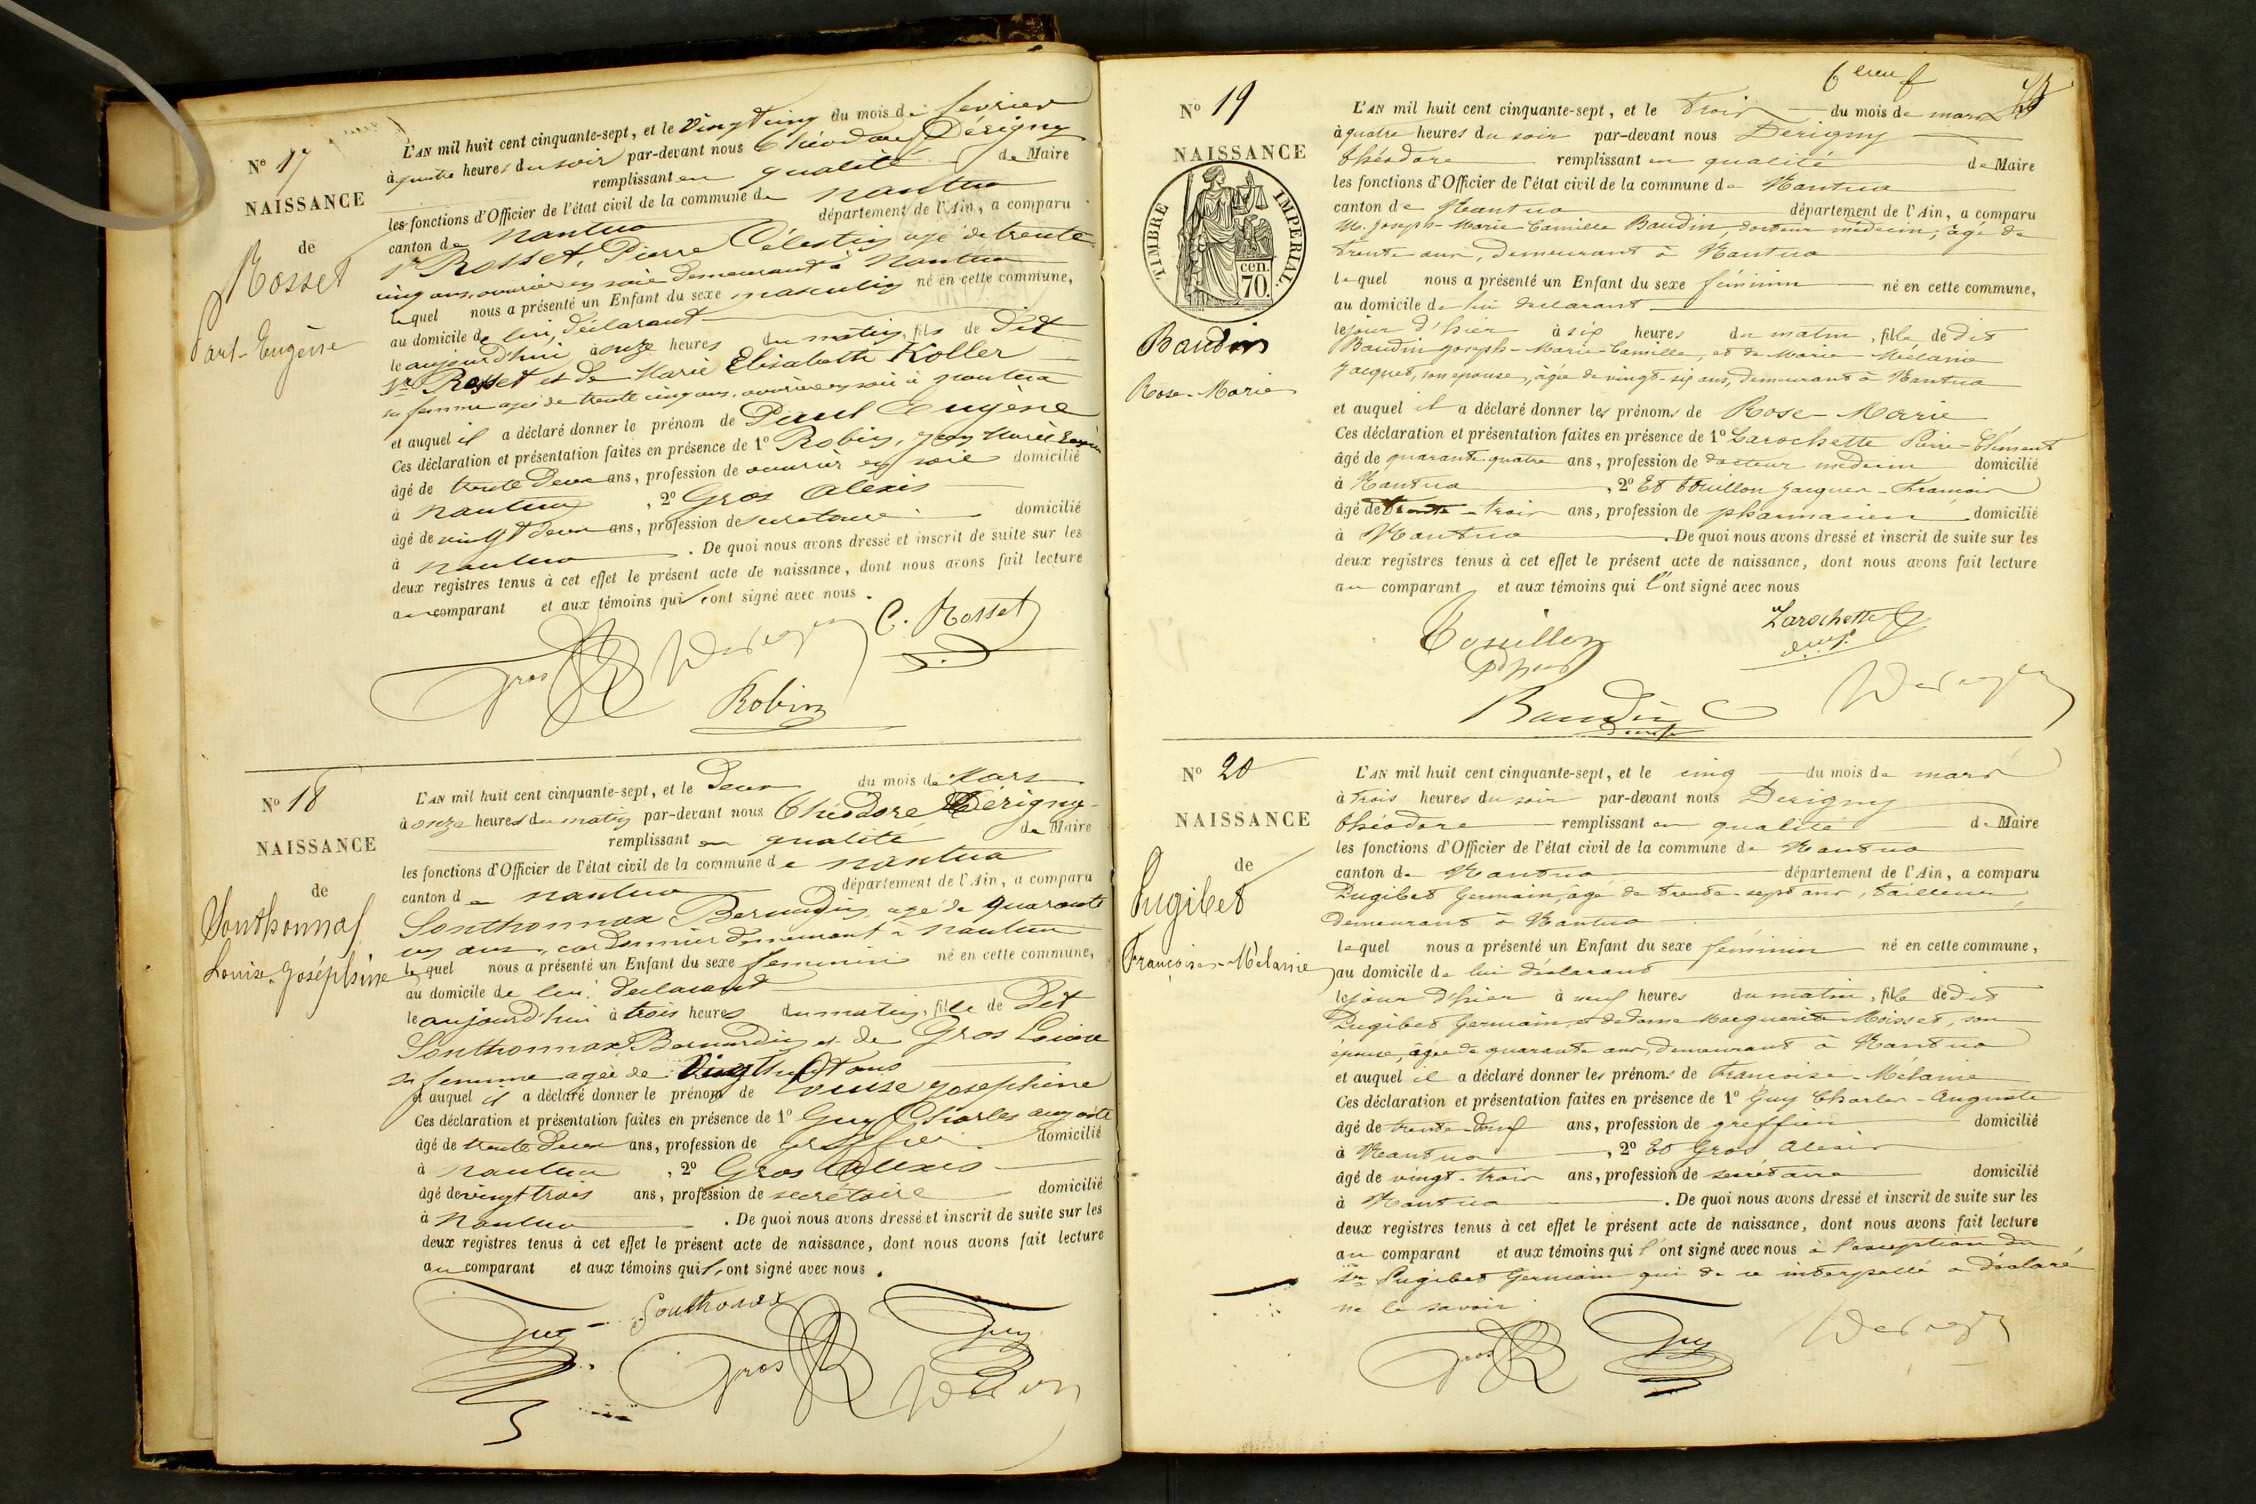 N° 17
NAISSANCE
de
Rosset
Paul-Eugène
L'AN mil huit cent cinquante-sept, et le vingt cinq du mois de fevrier
à quatre heures du soir par-devant nous Théodore Dérigny
remplissant en qualité de Maire
les fonctions d'Officier de l'état civil de la commune de nantua
canton de nantua département de l'Ain, a comparu
Sr Rosset, Pierre Célestin agé de trente
cinq ans, ouvrier en soie demeurant à Nantua
lequel nous a présenté un Enfant du sexe masculin né en cette commune,
au domicile de lui, déclarant
le aujourd'hui à onze heures du matin, fils de dit
Sr Rosset et de Marie Elisabeth Koller
sa femme agée de trente cinq ans, ouvrière en soie à nantua
et auquel il a déclaré donner le prénom de Paul Eugène
Ces déclaration et présentation faites en présence de 1° Robin, Jean Marie
âgé de trente deux ans, profession de ouvrier en soie domicilié
à nantua, 2° Gros Alexis
âgé de vingt deux ans, profession de secretaire domicilié
à nantua. De quoi nous avons dressé et inscrit de suite sur les
deux registres tenus à cet effet le présent acte de naissance, dont nous avons fait lecture
au comparant et aux témoins qui l'ont signé avec nous.
C. Rosset
Gros
Robin
N° 18
NAISSANCE
de
Sonthonnax
Louise-Joséphine
L'AN mil huit cent cinquante-sept, et le Deux du mois de Mars
à onze heures du matin par-devant nous Théodore Dérigny
remplissant en qualité de Maire
les fonctions d'Officier de l'état civil de la commune de nantua
canton de nantua département de l'Ain, a comparu
Sonthonnax Bernardin agé de quarante
ans, cordonnier demeurant à nantua
lequel nous a présenté un Enfant du sexe feminin né en cette commune,
au domicile de lui declarant
le aujourd'hui à trois heures du matin, fille de Dit
Sonthonnax Bernardin et de Gros Louise
sa femme agée de vingt huit ans
et auquel il a déclaré donner le prénom de Louise Josephine
Ces déclaration et présentation faites en présence de 1° Guy Charles auguste
âgé de trente deux ans, profession de greffier domicilié
à nantua, 2° Gros Alexis
âgé de vingt trois ans, profession de secrétaire domicilié
à Nantua. De quoi nous avons dressé et inscrit de suite sur les
deux registres tenus à cet effet le présent acte de naissance, dont nous avons fait lecture
au comparant et aux témoins qui l'ont signé avec nous.
Guy Sonthonax Guy
Gros
N° 19
NAISSANCE
TIMBRE IMPERIAL
70 cen.
Baudin
Rose-Marie
L'AN mil huit cent cinquante-sept, et le trois du mois de mars
à quatre heures du soir par-devant nous Dérigny
théodore remplissant en qualité de Maire
les fonctions d'Officier de l'état civil de la commune de Nantua
canton de Nantua département de l'Ain, a comparu
M. Joseph-Marie Camille Baudin, docteur médecin, âgé de
trente ans, demeurant à Nantua
lequel nous a présenté un Enfant du sexe féminin né en cette commune,
au domicile de lui déclarant
le jour d'hier à six heures du matin, fille de dit
Baudin Joseph-Marie-Camille, et de Marie-Mélanie
Jacquet, son épouse, âgée de vingt-six ans, demeurant à Nantua
et auquel il a déclaré donner les prénoms de Rose-Marie
Ces déclaration et présentation faites en présence de 1° Larochette Pierre-Clément
âgé de quarante quatre ans, profession de docteur médecin domicilié
à Nantua, 2° Et touillon Jacques-François
âgé de trente-trois ans, profession de pharmacien domicilié
à Nantua. De quoi nous avons dressé et inscrit de suite sur les
deux registres tenus à cet effet le présent acte de naissance, dont nous avons fait lecture
au comparant et aux témoins qui l'ont signé avec nous
Touillon Larochette
Baudin
N° 20
NAISSANCE
de
Pugibet
Françoise-Mélanie
L'AN mil huit cent cinquante-sept, et le cinq du mois de mars
à trois heures du soir par-devant nous Dérigny
théodore remplissant en qualité de Maire
les fonctions d'Officier de l'état civil de la commune de Nantua
canton de Nantua département de l'Ain, a comparu
Pugibet Germain, âgé de trente-sept ans, tailleur,
demeurant à Nantua
lequel nous a présenté un Enfant du sexe féminin né en cette commune,
au domicile de lui déclarant
le jour d'hier à neuf heures du matin, fille de dit
Pugibet Germain, et de dame Marguerite Moisset, son
épouse, âgée de quarante ans, demeurant à Nantua
et auquel il a déclaré donner les prénoms de françoise-Mélanie
Ces déclaration et présentation faites en présence de 1° Guy Charles-Auguste
âgé de trente-deux ans, profession de greffier domicilié
à Nantua, 2° Et Gros Alexis
âgé de vingt-trois ans, profession de secrétaire domicilié
à Nantua. De quoi nous avons dressé et inscrit de suite sur les
deux registres tenus à cet effet le présent acte de naissance, dont nous avons fait lecture
au comparant et aux témoins qui l'ont signé avec nous à l'exception du
Sr Pugibet Germain qui de ce interpellé a déclaré
ne le savoir
Gros Guy